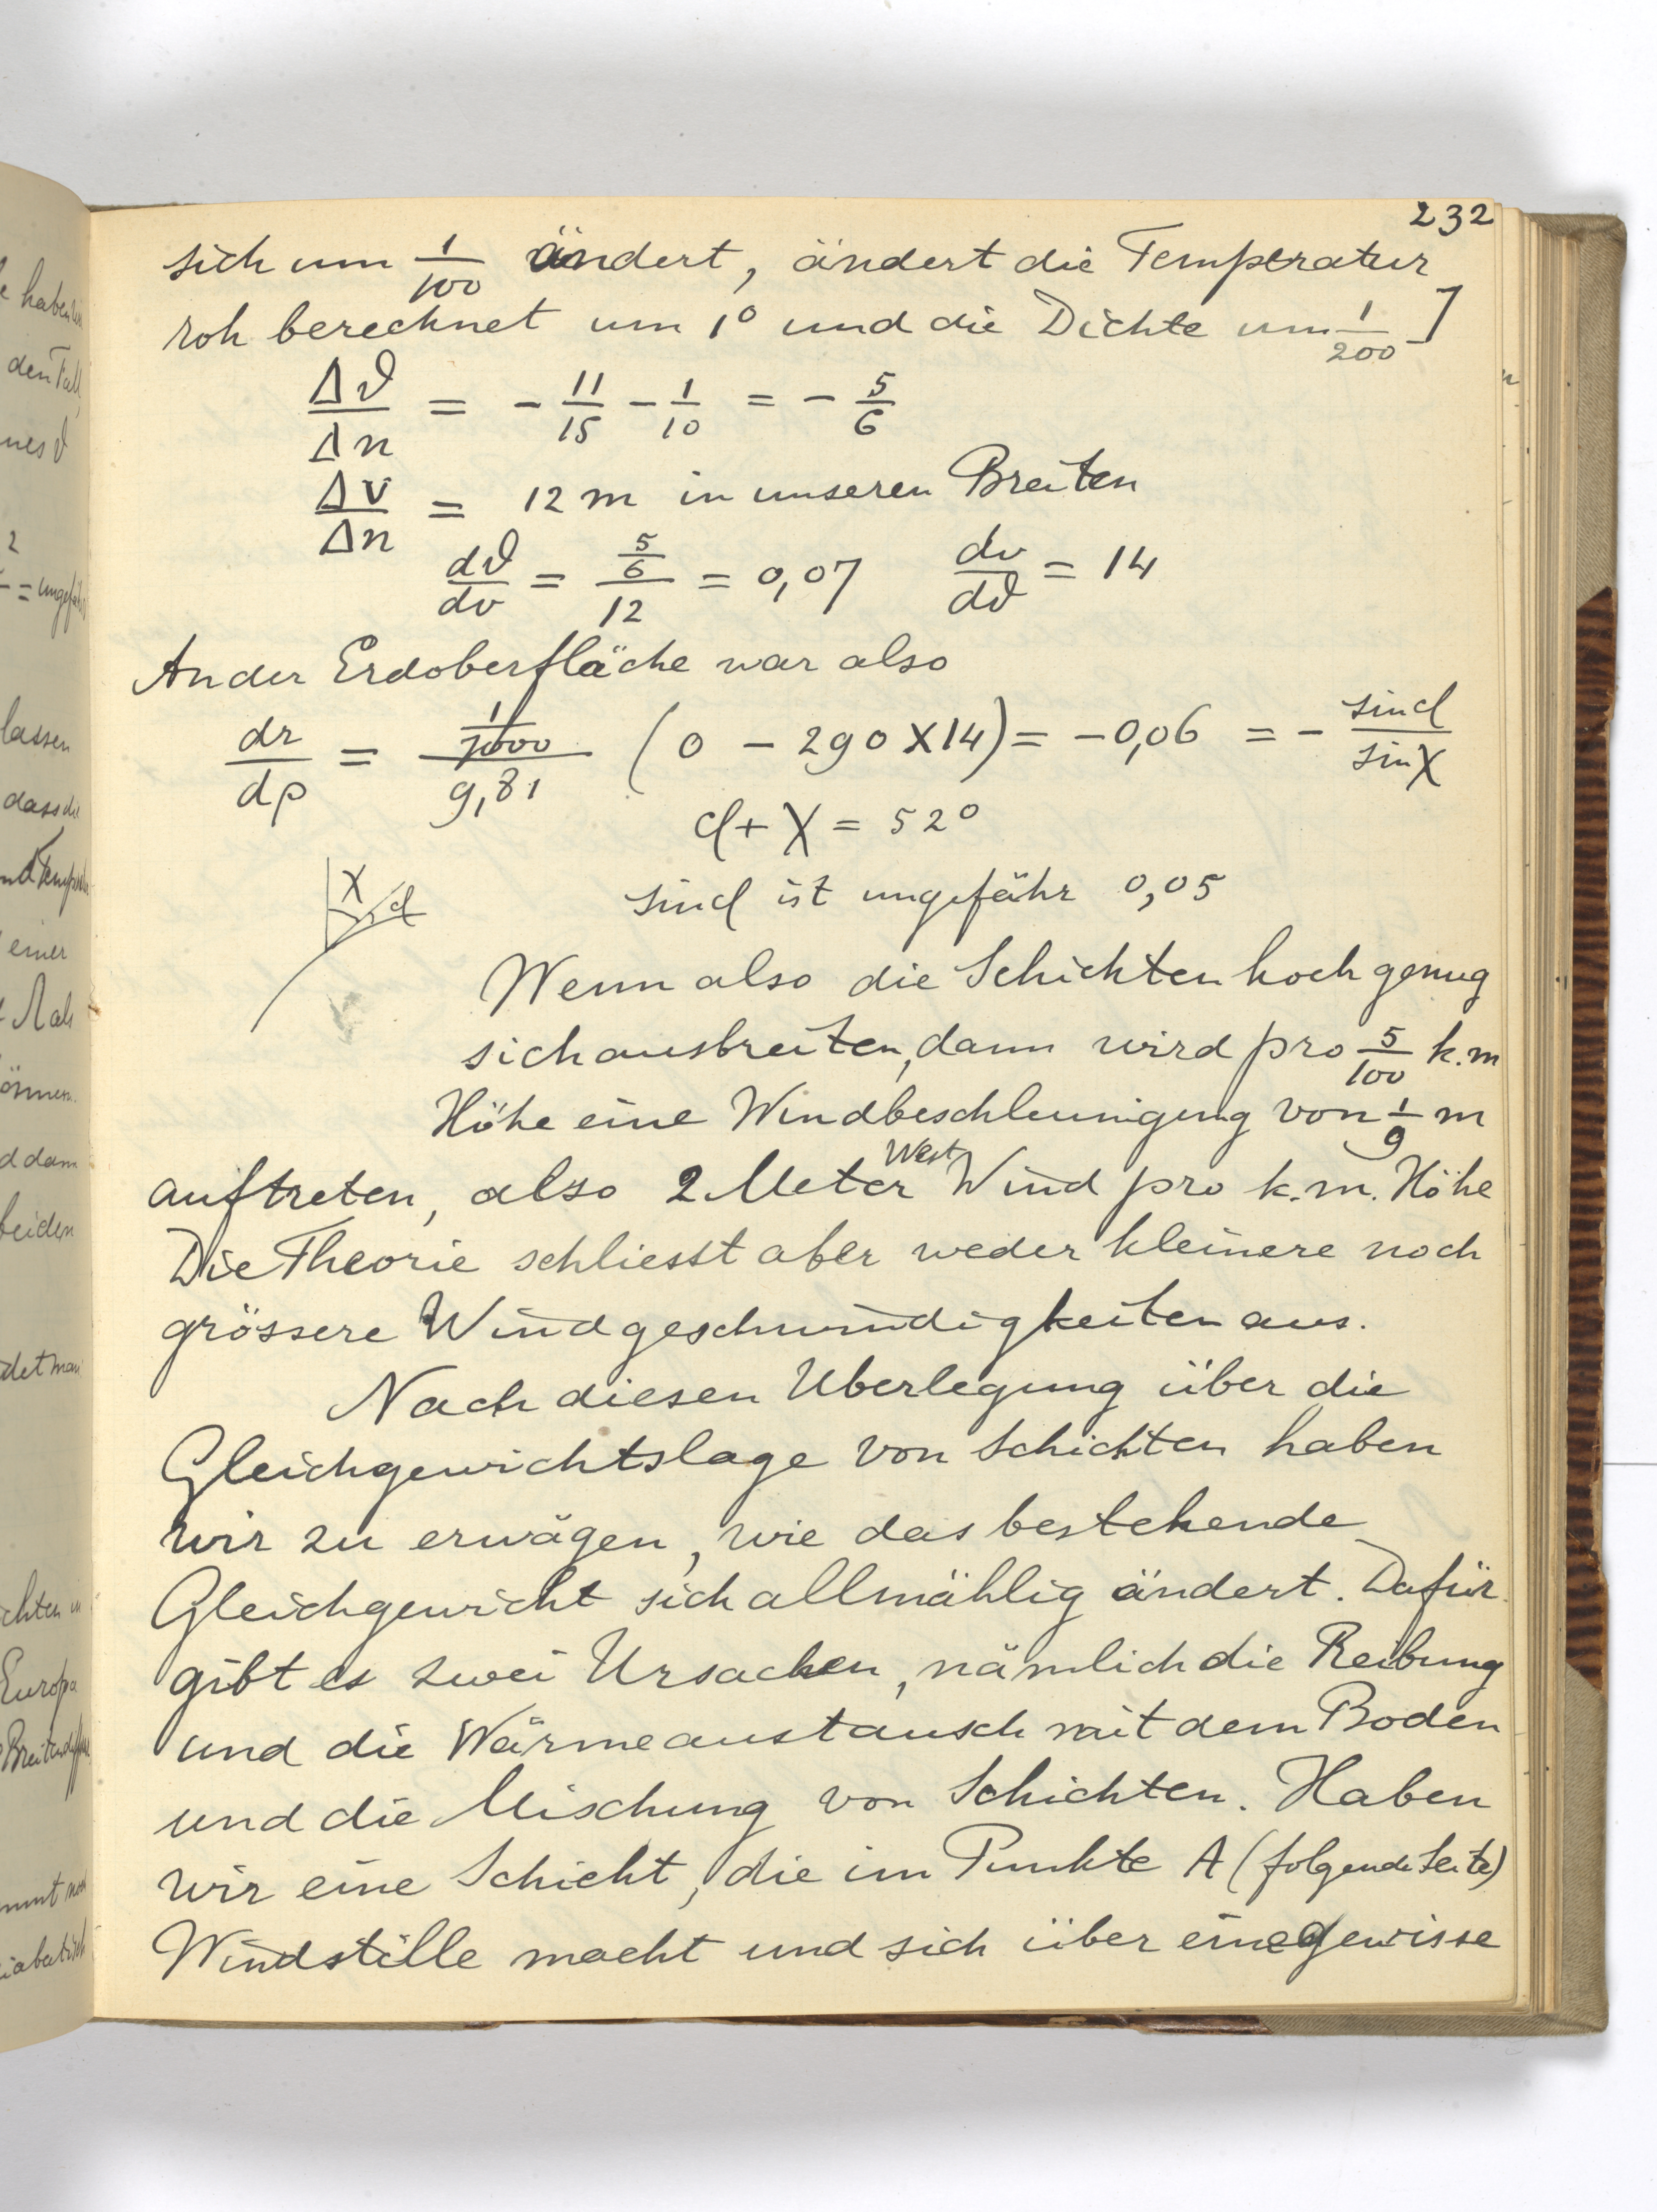 232
sich um 1/100 ändert, ändert die Temperatur
roh berechnet um 1° und die Dichte um 1/200 ]
Δϑ/Δn = - 11/15 - 1/10 = - 5/6
Δv/Δn = 12 m in unseren Breiten
dϑ/dv = 5/6 / 12 = 0,07 dv/dϑ = 14
An der Erdoberfläche war also
dr/dρ = 1/7000 / 9,81 (0 - 290 X 14) = -0,06 = - sin d / sin χ
d + χ = 52°
χ d
sin d ist ungefähr 0,05
Wenn also die Schichten hoch genug
sich ausbreiten, dann wird pro 5/100 k.m
Höhe eine Windbeschleunigung von 1/9 m
auftreten, also 2 Meter West Wind pro k.m. Höhe
Die Theorie schliesst aber weder kleinere noch
grössere Windgeschwindigkeiten aus.
Nach diesen Uberlegung über die
Gleichgewichtslage von Schichten haben
wir zu erwägen, wie das bestehende
Gleichgewicht sich allmählig ändert. Dafür
gibt es zwei Ursachen, nämlich die Reibung
und die Wärmeaustausch mit dem Boden
und die Mischung von Schichten. Haben
wir eine Schicht, die im Punkte A (folgende Seite)
Windstille macht und sich über eine gewisse